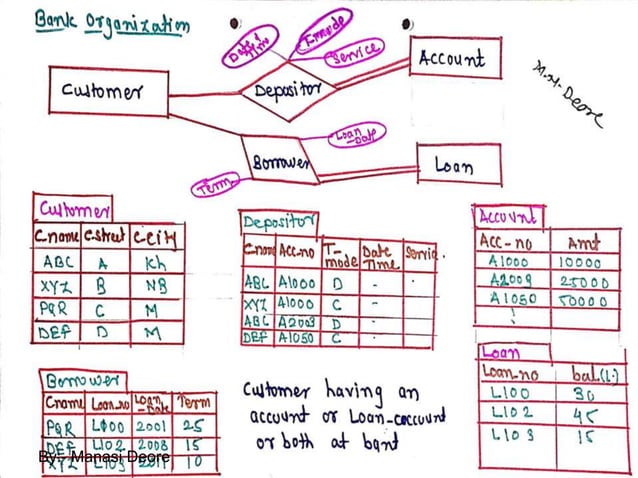 Bank Organization
Date & Time
T-mode
Service
Account
Customer
Depositor
M.H. Deore
Loan-Date
Borrower
Loan
Term
Customer
C.name C-street C-City
ABC A Kh
XYZ B NB
PQR C M
DEF D M
Depositor
C.name Acc.no T-mode Date Time Servic.
ABC A1000 D - -
XYZ A1000 C -
ABC A2009 D -
DEF A1050 C -
Account
Acc-no Amt
A1000 10000
A2009 25000
A1050 50000
Loan
Loan-no bal.(L.)
L100 30
L102 45
L103 15
Borrower
Cname Loan.no Loan-Date Term
PQR L000 2001 25
DEF L102 2008 15
XYZ L103 10
By:- Manasi Deore
Customer having an
account or Loan-account
or both at bqnt